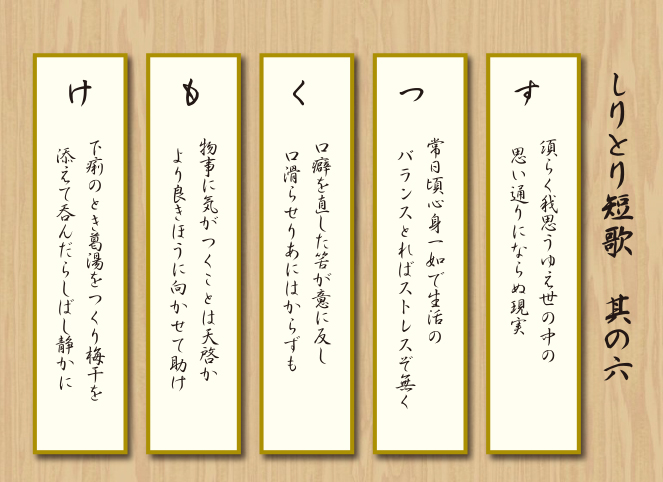 しりとり短歌　其の六
す
須らく我思うゆえ世の中の
思い通りにならぬ現実
つ
常日頃心身一如で生活の
バランスとればストレスぞ無く
く
口癖を直した筈が意に反し
口滑らせりあにはからずも
も
物事に気がつくことは天啓か
より良きほうに向かせて助け
け
下痢のとき葛湯をつくり梅干を
添えて呑んだらしばし静かに